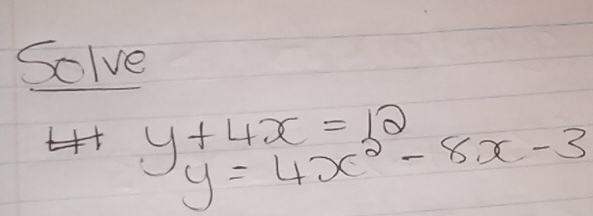 Solve
y + 4x = 12
y = 4x² - 8x - 3